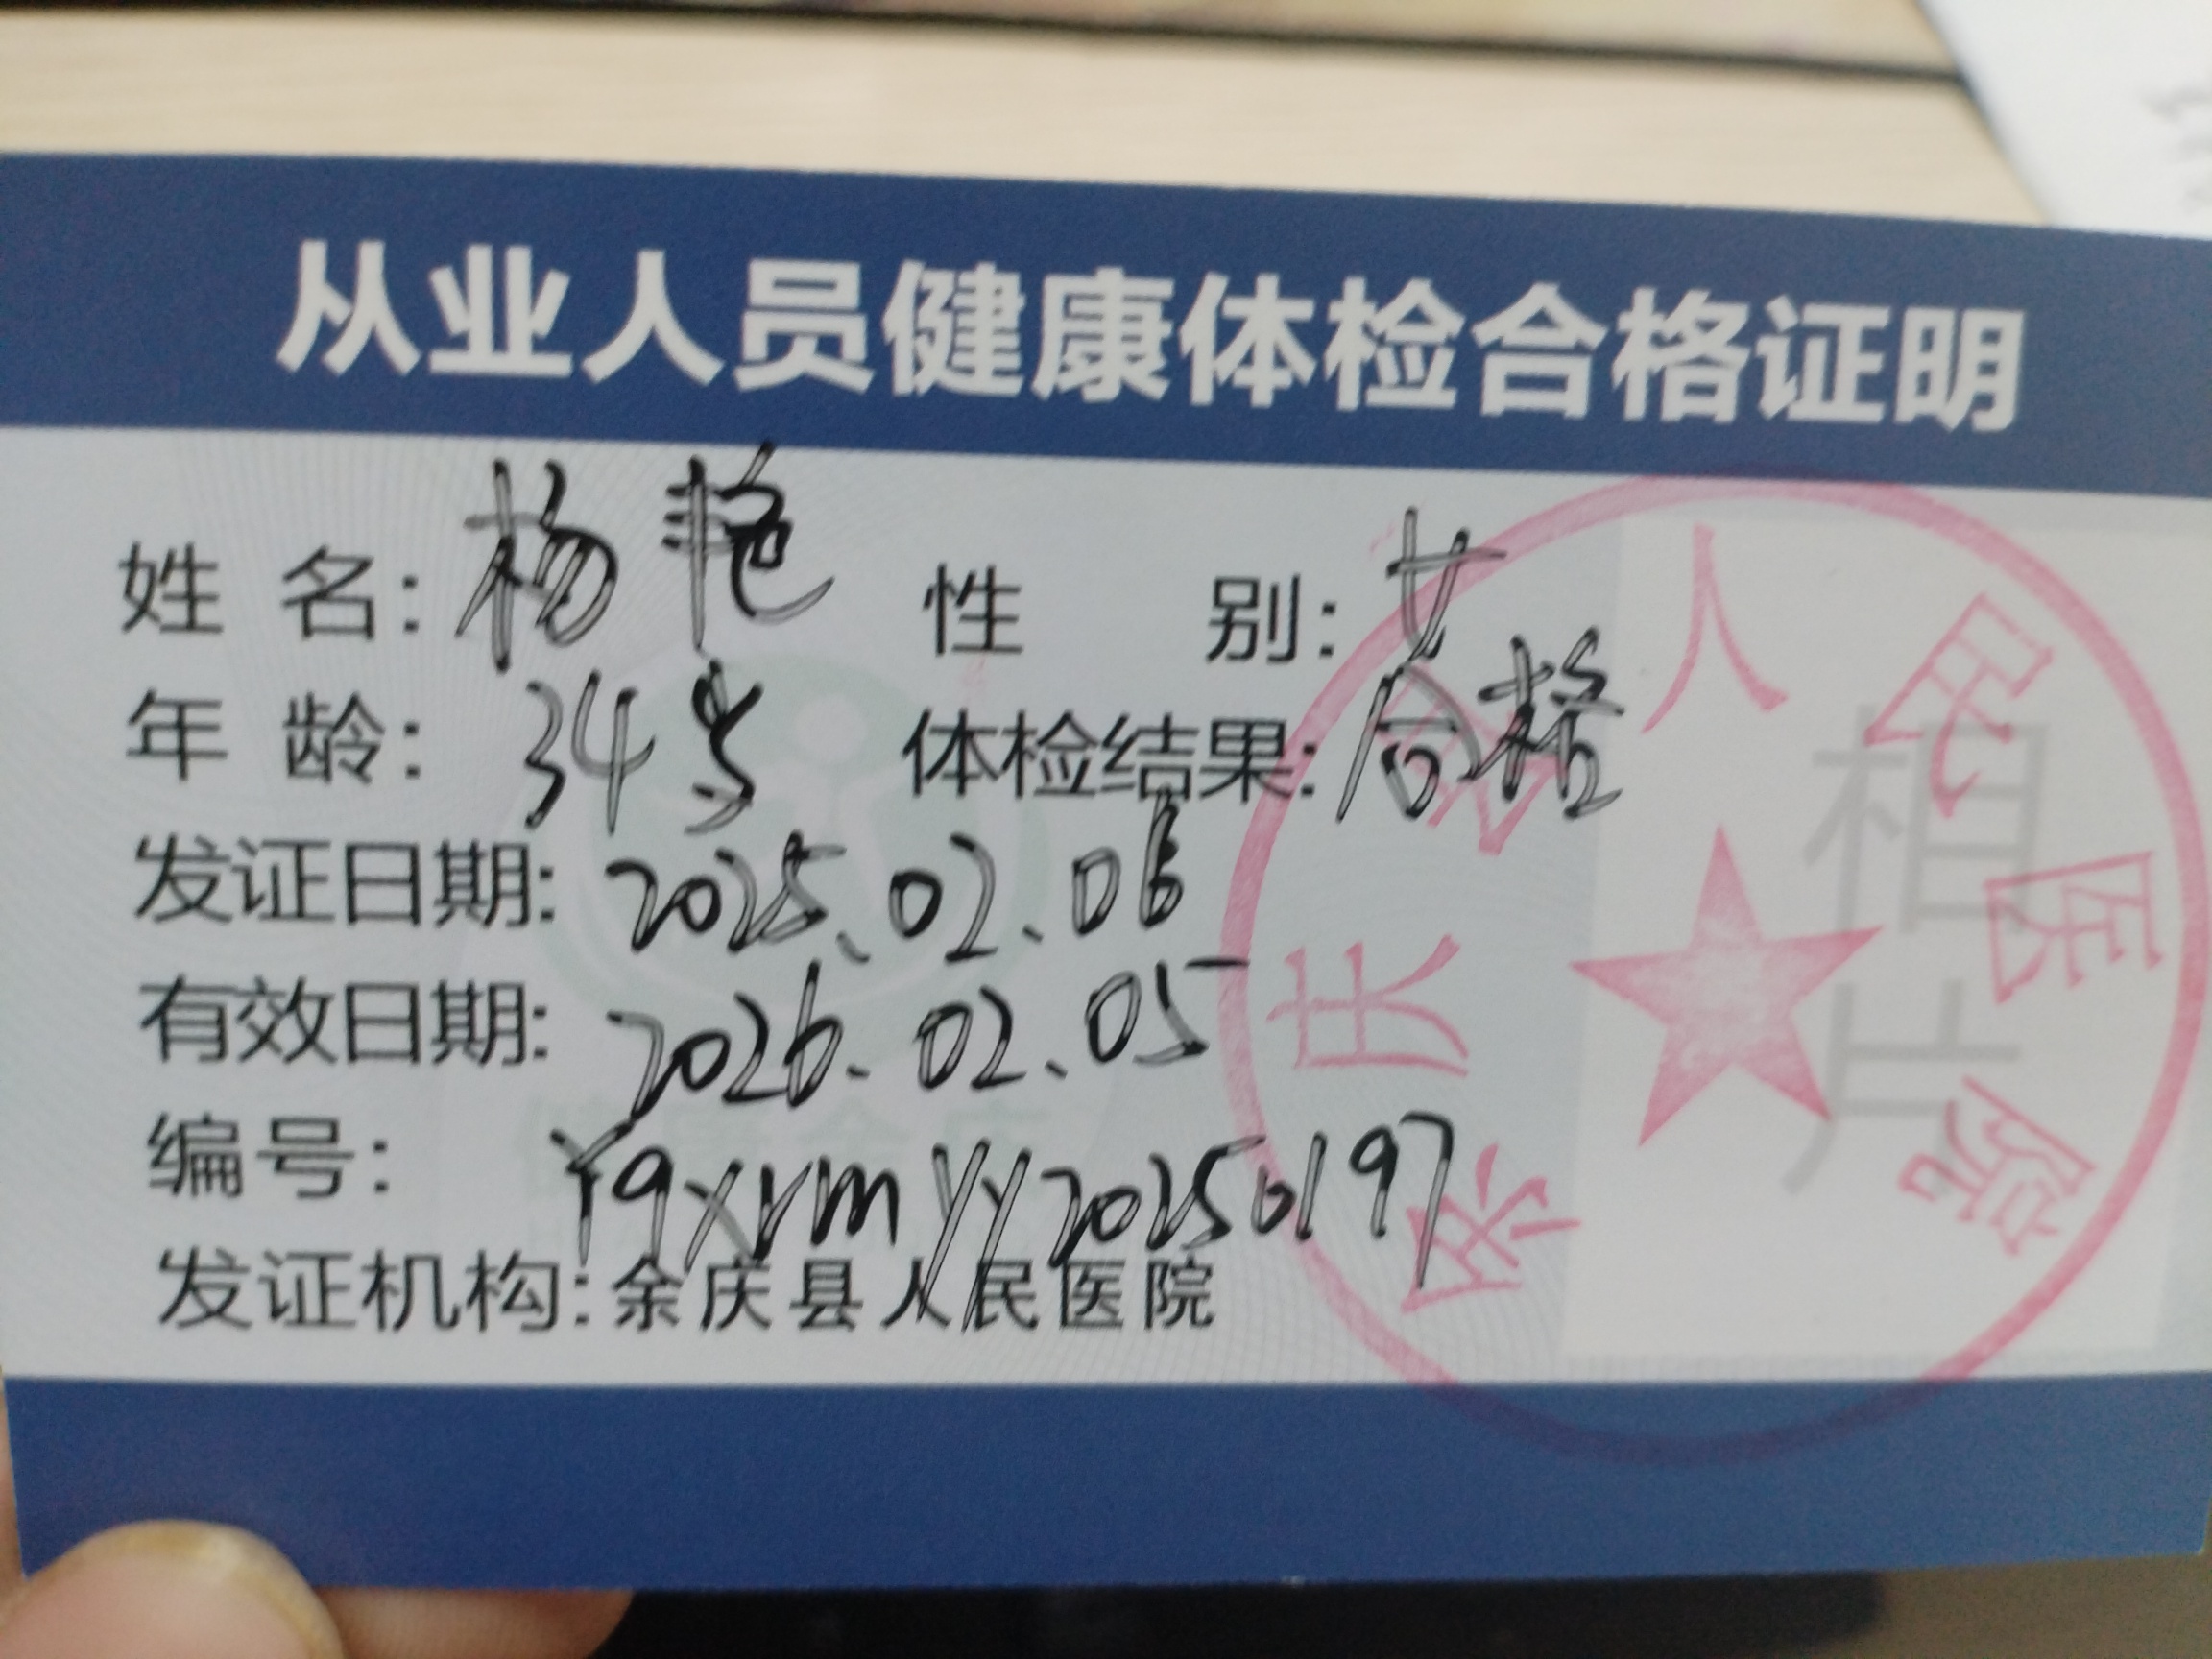 从业人员健康体检合格证明
姓 名: 杨艳 性 别: 女
年 龄: 34岁 体检结果: 合格
发证日期: 2025.02.06
有效日期: 2026.02.05
编号: YqxrmYY20250197
发证机构: 余庆县人民医院
相片
余庆县人民医院